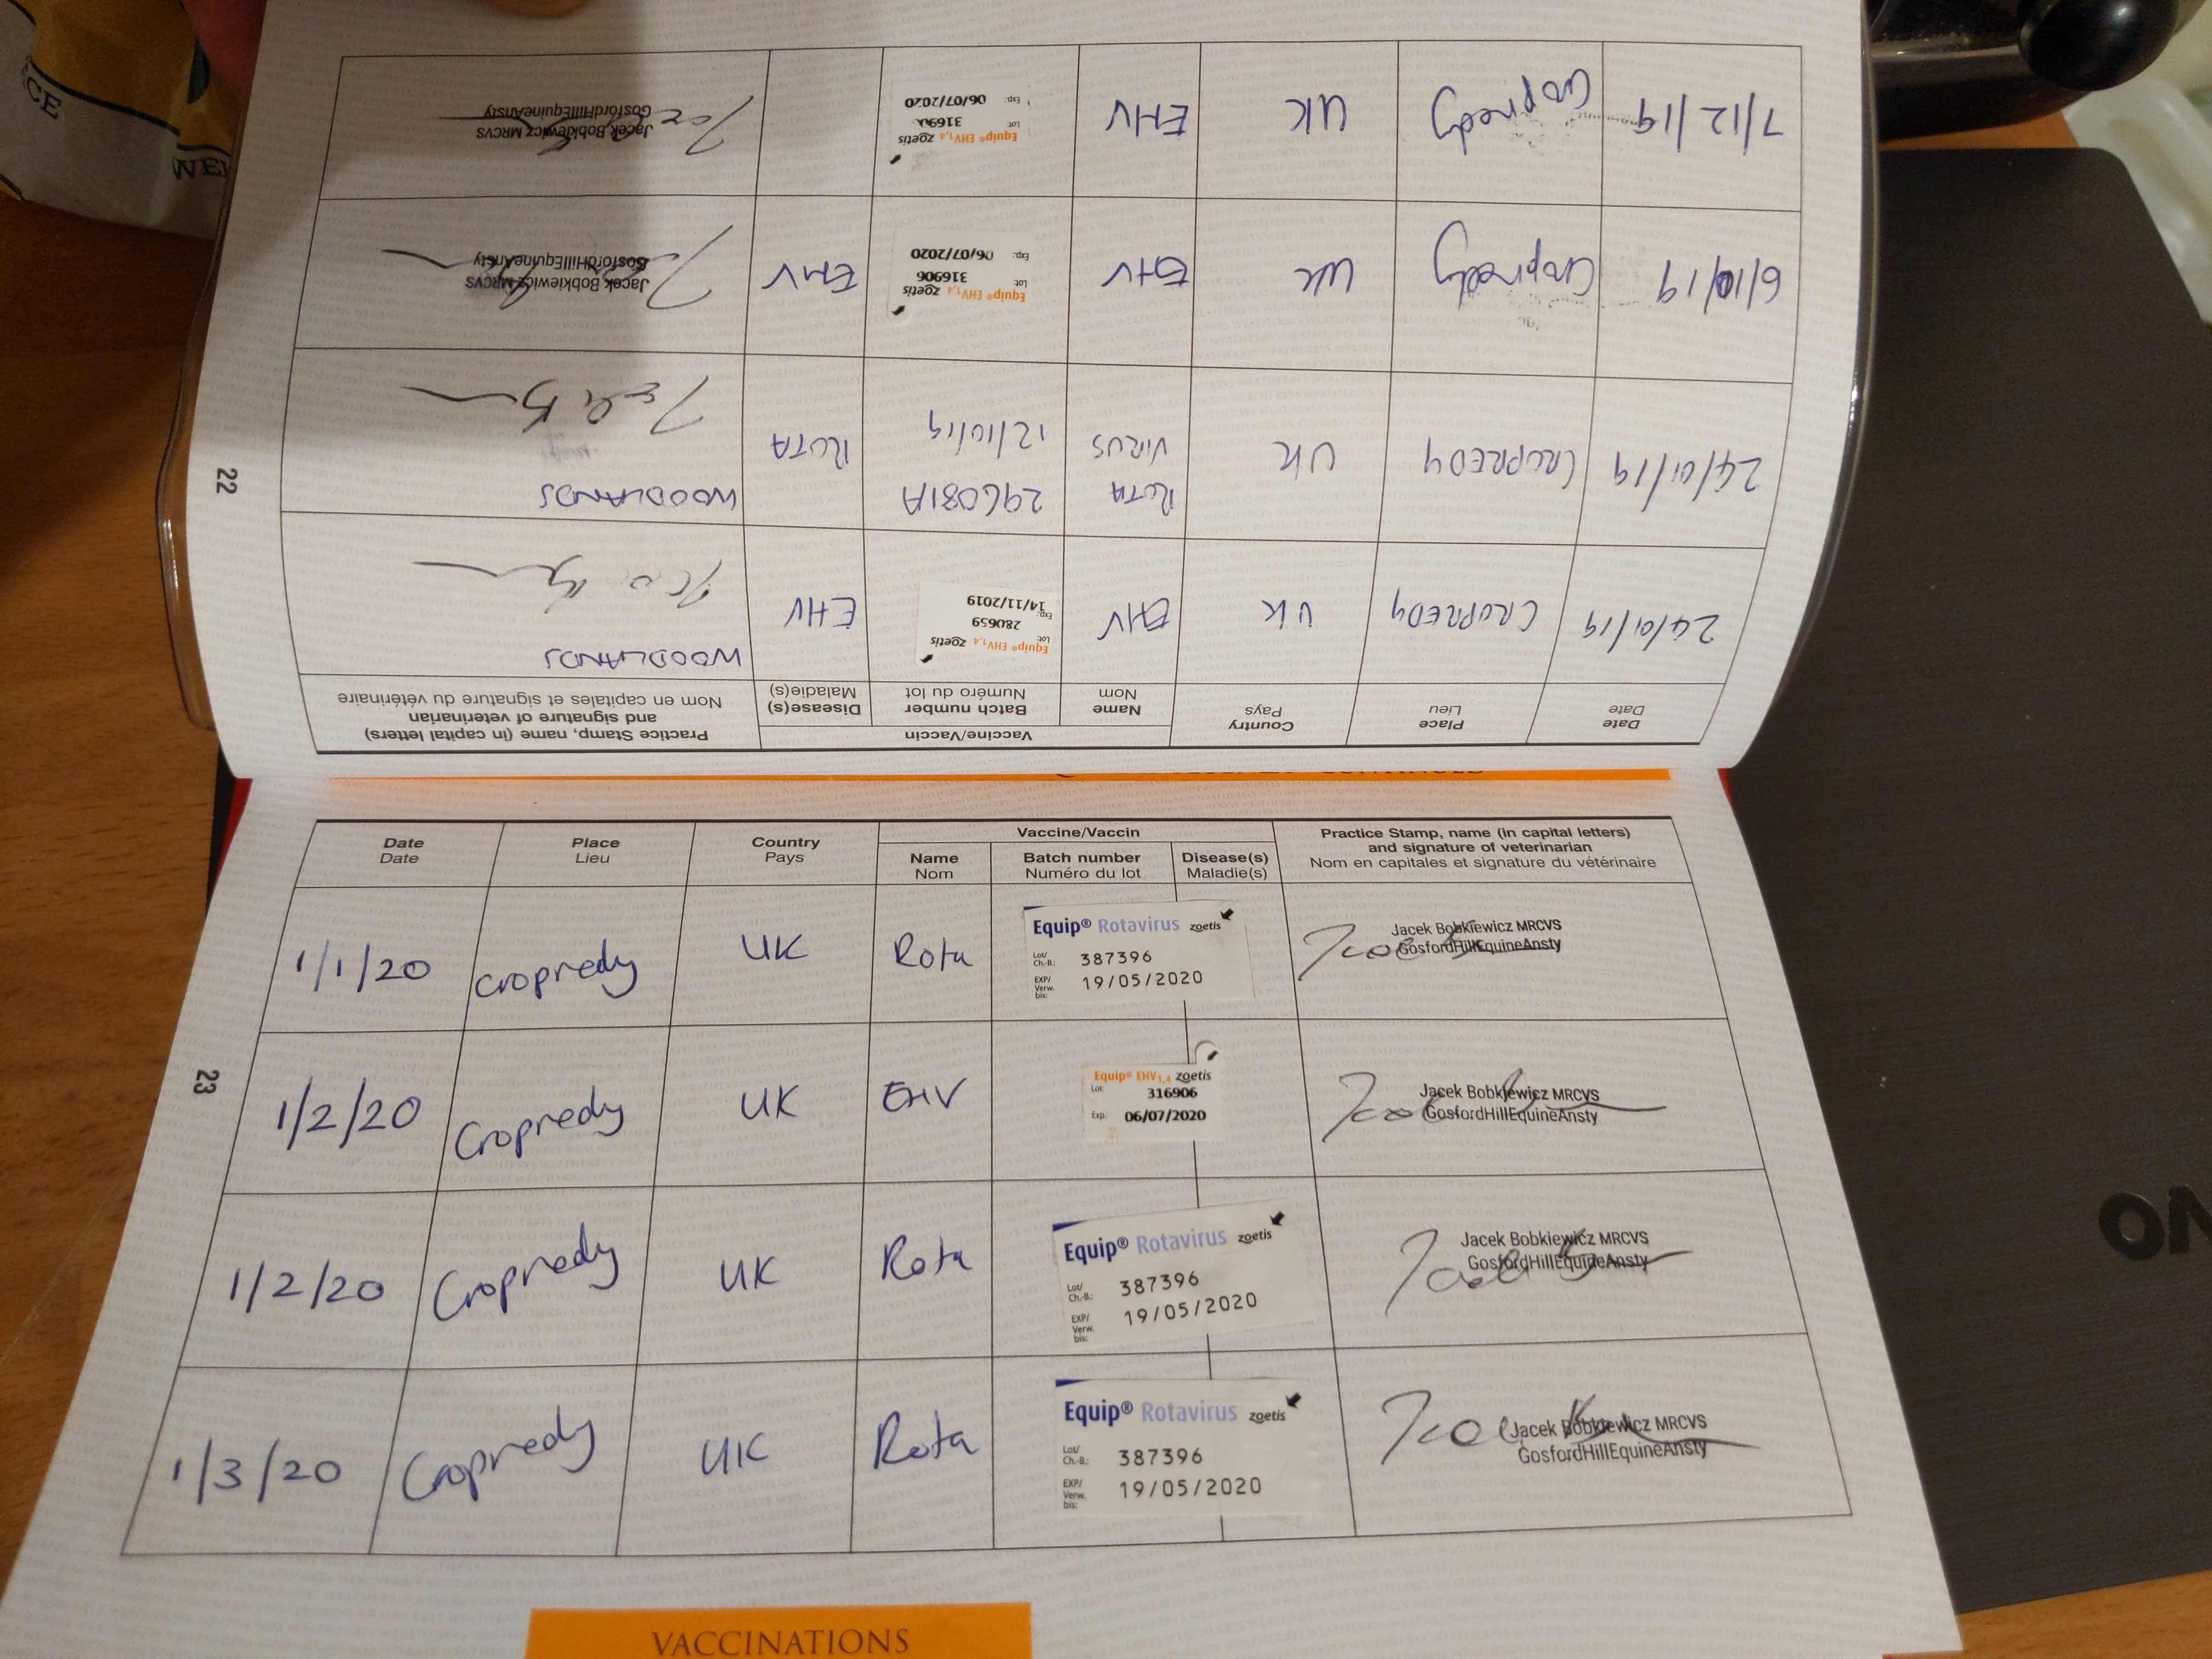 22
Date
Date
Place
Lieu
Country
Pays
Vaccine/Vaccin
Name
Nom
Batch number
Numéro du lot
Disease(s)
Maladie(s)
Practice Stamp, name (in capital letters)
and signature of veterinarian
Nom en capitales et signature du vétérinaire
24/01/19
CROPREDY
UK
EHV
Equip® EHV1,4 zoetis
Lot: 280659
Exp: 14/11/2019
EHV
WOODLANDS
24/01/19
CROPREDY
UK
ROTA
VIRUS
296081A
12/10/19
ROTA
WOODLANDS
6/10/19
Cropredy
UK
EHV
Equip® EHV1,4 zoetis
Lot: 316906
Exp: 06/07/2020
EHV
Jacek Bobkiewicz MRCVS
GosfordHillEquineAnsty
7/12/19
Cropredy
UK
EHV
Equip® EHV1,4 zoetis
Lot:
Exp: 06/07/2020
Jacek Bobkiewicz MRCVS
GosfordHillEquineAnsty
23
Date
Date
Place
Lieu
Country
Pays
Vaccine/Vaccin
Name
Nom
Batch number
Numéro du lot
Disease(s)
Maladie(s)
Practice Stamp, name (in capital letters)
and signature of veterinarian
Nom en capitales et signature du vétérinaire
1/1/20
Cropredy
UK
Rota
Equip® Rotavirus zoetis
Lot/
Ch.-B.: 387396
EXP/
Verw.
bis: 19/05/2020
Jacek Bobkiewicz MRCVS
GosfordHillEquineAnsty
1/2/20
Cropredy
UK
EHV
Equip® EHV1,4 zoetis
Lot: 316906
Exp: 06/07/2020
Jacek Bobkiewicz MRCVS
GosfordHillEquineAnsty
1/2/20
Cropredy
UK
Rota
Equip® Rotavirus zoetis
Lot/
Ch.-B.: 387396
EXP/
Verw.
bis: 19/05/2020
Jacek Bobkiewicz MRCVS
GosfordHillEquineAnsty
1/3/20
Cropredy
UK
Rota
Equip® Rotavirus zoetis
Lot/
Ch.-B.: 387396
EXP/
Verw.
bis: 19/05/2020
Jacek Bobkiewicz MRCVS
GosfordHillEquineAnsty
VACCINATIONS